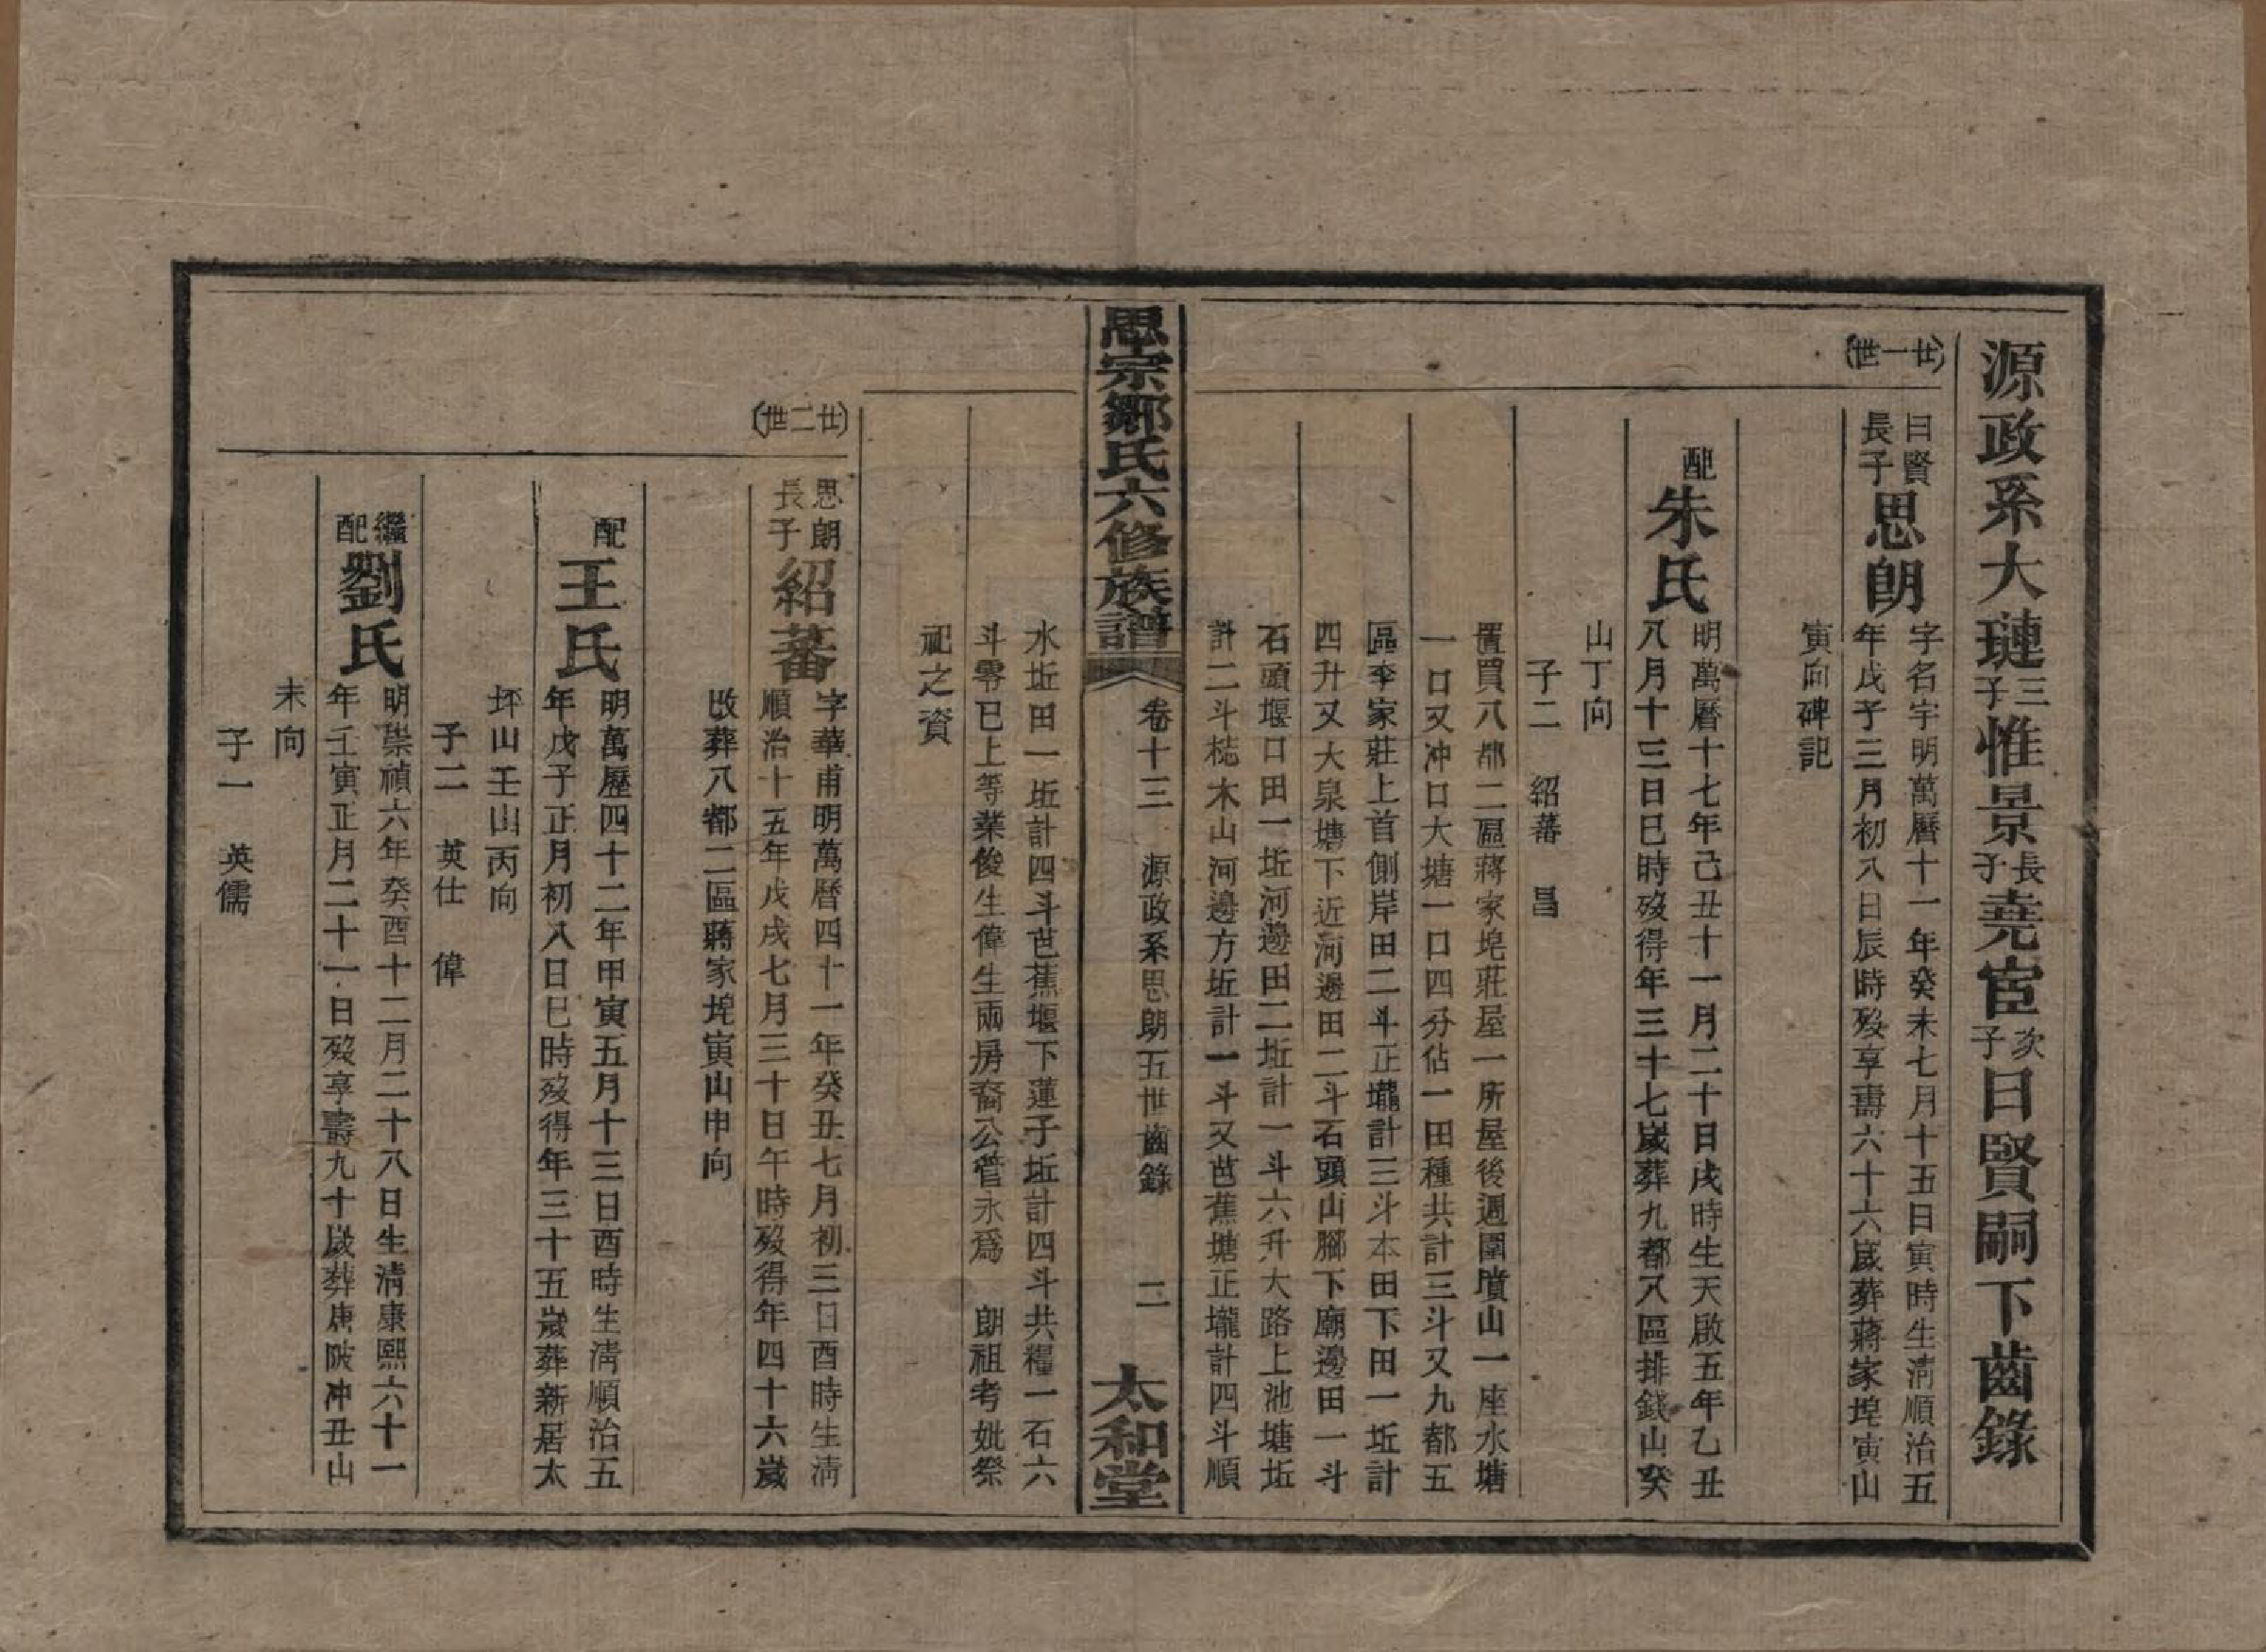 源政系大璉三子惟景長子堯宦次子日賢嗣下齒錄
(廿一世)
日賢長子思朗
字名宇明萬曆十一年癸未七月十五日寅時生清順治五
年戊子三月初八日辰時歿享壽六十六歲葬蔣家埦寅山
寅向碑記
配朱氏
明萬曆十七年己丑十一月二十日戌時生天啟五年乙丑
八月十三日巳時歿得年三十七歲葬九都八區排錢山癸
山丁向
子二 紹蕃 昌
置買八都二區蔣家埦莊屋一所屋後週圍墳山一座水塘
一口又冲口大塘一口四分佔一田種共計三斗又九都五
區李家莊上首側岸田二斗正壠計三斗本田下田一坵計
四升又大泉塘下近河邊田二斗石頭山腳下廟邊田一斗
石頭堰口田一坵河邊田二坵計一斗六升大路上池塘坵
計二斗梽木山河邊方坵計一斗又芭蕉塘正壠計四斗順
思宗鄒氏六修族譜 卷十三 源政系思朗五世齒錄 二 太和堂
水坵田一坵計四斗芭蕉堰下蓮子坵計四斗共糧一石六
斗零巳上等業俊生偉生兩房裔公管永爲 朗祖考妣祭
祀之資
(廿二世)
思朗長子紹蕃
字華甫明萬曆四十一年癸丑七月初三日酉時生清
順治十五年戊戌七月三十日午時歿得年四十六歲
改葬八都二區蔣家埦寅山申向
配王氏
明萬歷四十二年甲寅五月十三日酉時生清順治五
年戊子正月初八日巳時歿得年三十五歲葬新居太
坪山壬山丙向
子二 英仕 偉
繼配劉氏
明崇禎六年癸酉十二月二十八日生清康熙六十一
年壬寅正月二十一日歿享壽九十歲葬唐陂冲丑山
未向
子一 英儒